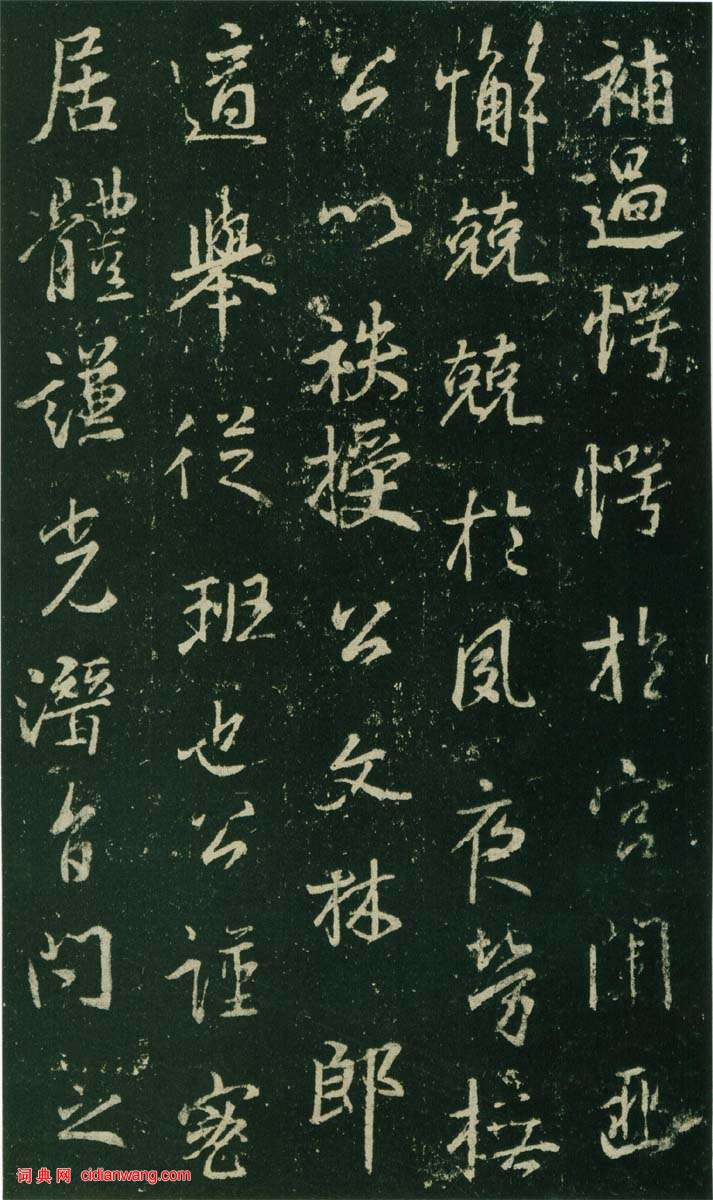 補過愕愕於宮闈匪
懈兢兢於夙夜勞
公以袟授公文林郎
道舉從班也公謹密
居體謙光潛旨問之
词典网 cidianwang.com